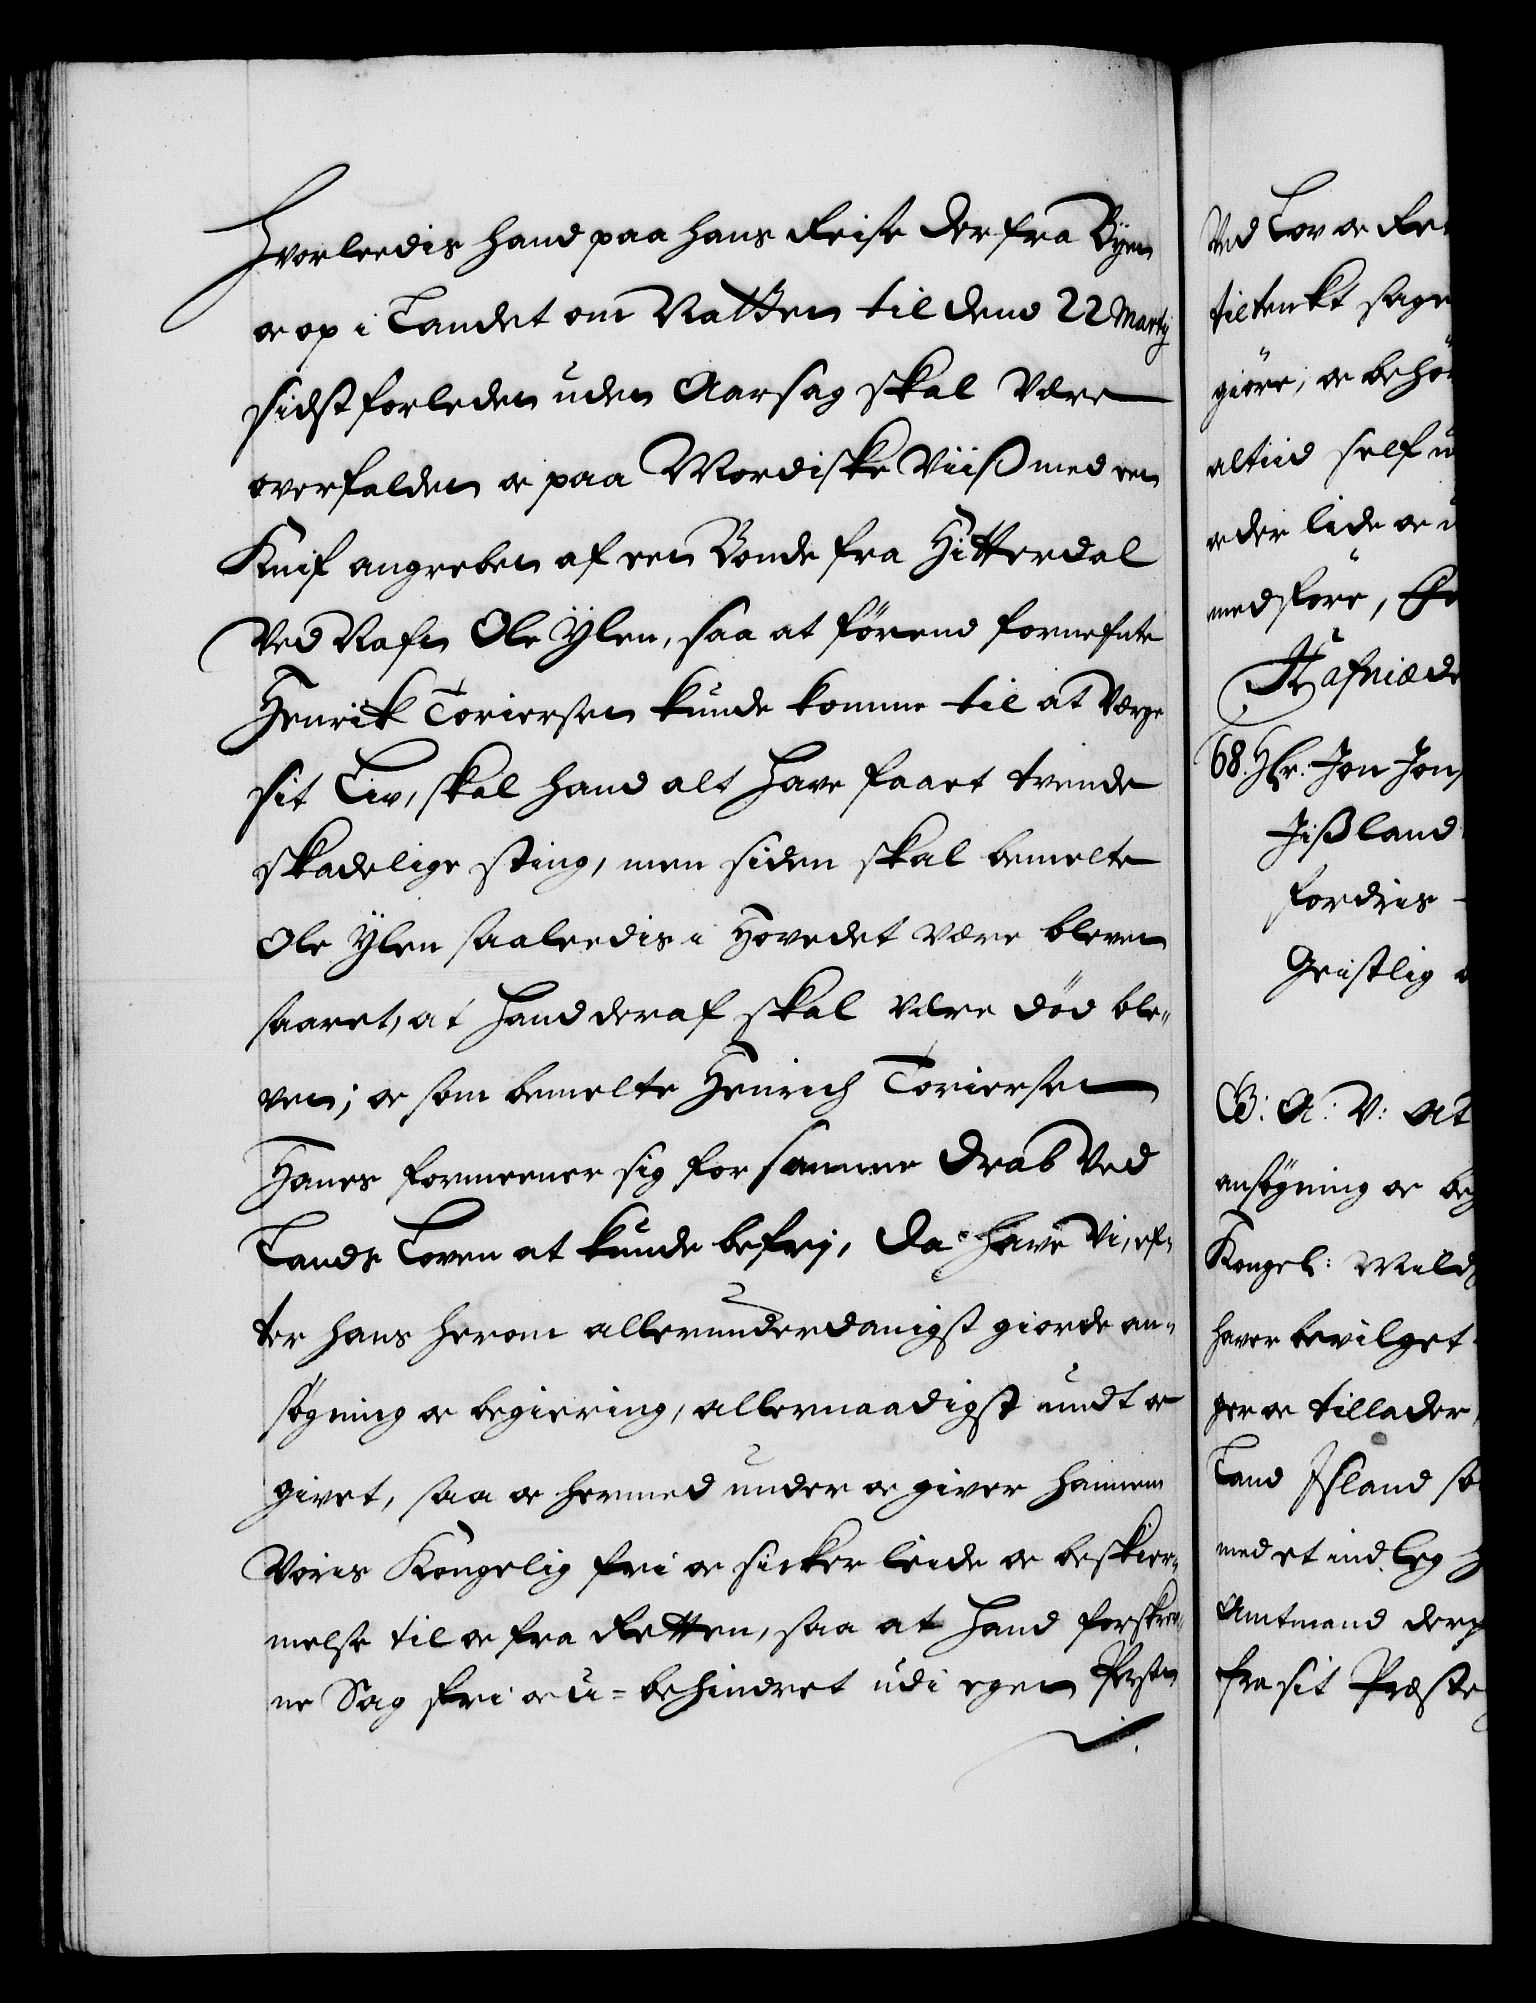 Hvorleedis hand paa hans Reise der fra Byen
og op i Landet om Natten til dend 22 Martij
sidst forleden uden Aarsag skal være
overfalden og paa Mordiske Viiß med een
Knif angreben af een Bonde fra Hitterdal
Ved Nafn Ole Ylen, saa at förend fornefnte
Henrik Toriersen kunde komme til at Værge
sit Liv, skal hand alt have faaet trende
skadelige sting, men siden skal bemelte
Ole Ylen saaleedis i Hovedet være bleven
saaret, at hand deraf skal være död ble-
ven; og som bemelte Henrich Toriersen
Hanes formeener sig for samme Drab Ved
Lands Loven at kunde befrj, Da have Vi, ef-
ter hans herom allerunderdanigst giorde an-
søgning og begiering, allernaadigst undt og
givet, saa og hermed under og giver hannem
Voris Kongelig fri og sicker leide og beskier-
melse til og fra Retten, saa at hand forskrev-
ne Sag fri og u-behindret udi egen Person
Ved Lov og Ret
tiltenkt sage
giöre, og behör
altiid self u
og der lide og u
medföre, Gi
Hafniæ d
68. Hr. Jon Jon
Jißland
fordris
Geistlig
G: A: V: At
ansøgning og beg
Kongel: Mild
haver bevilget
ger og tillader,
Land Jsland so
med et indleg
Amtmand der
fra sit Præste